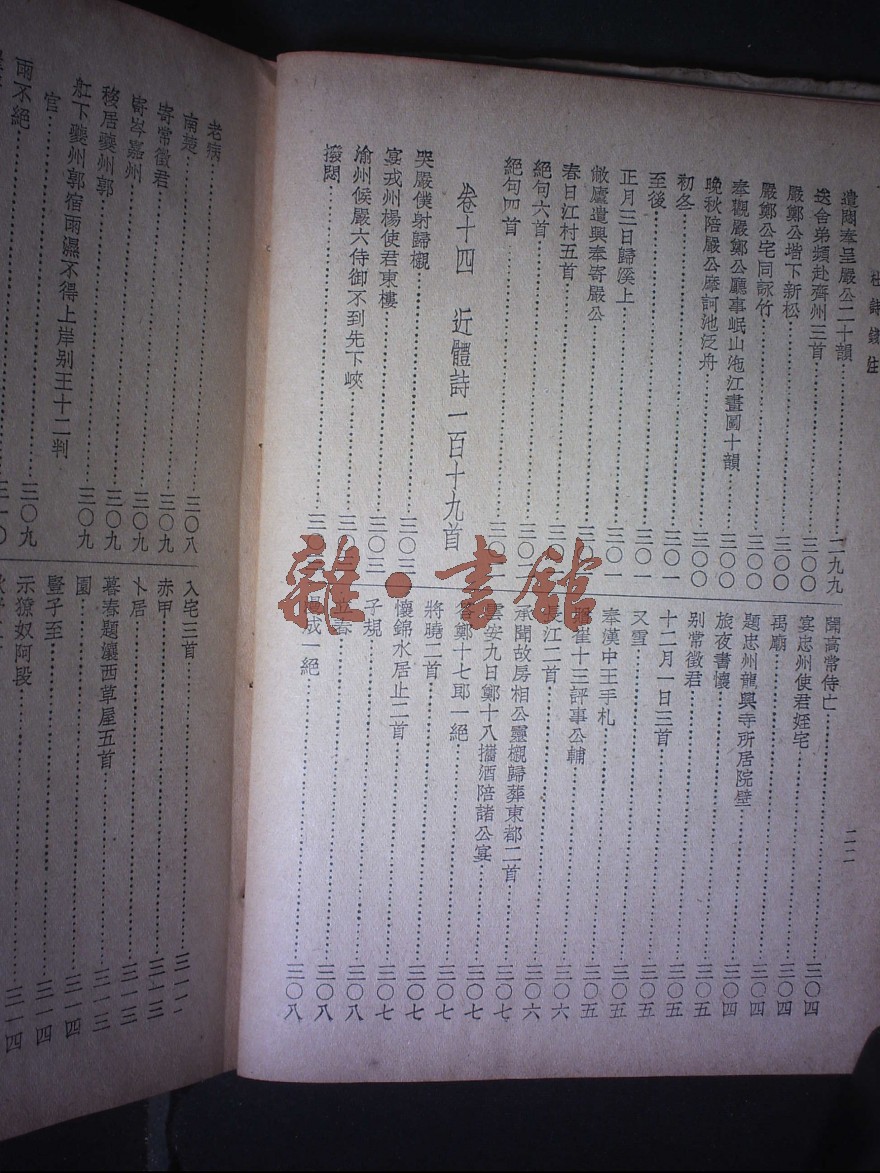 杜詩錢注
二二
遣悶奉呈嚴公二十韻……二九九
送舍弟頻赴齊州三首……三〇〇
嚴鄭公堦下新松……三〇〇
嚴鄭公宅同詠竹……三〇〇
奉觀嚴鄭公廳事岷山沲江畫圖十韻……三〇〇
晚秋陪嚴公摩訶池泛舟……三〇〇
初冬……三〇一
至後……三〇一
正月三日歸溪上……三〇一
敝廬遣興奉寄嚴公
春日江村五首
絕句六首
絕句四首
卷十四 近體詩一百十九首
哭嚴僕射歸櫬……三〇三
宴戎州楊使君東樓……三〇三
渝州候嚴六侍御不到先下峽
撥悶
聞高常侍亡……三〇四
宴忠州使君姪宅……三〇四
禹廟……三〇四
題忠州龍興寺所居院壁……三〇四
旅夜書懷……三〇四
别常徵君……三〇五
十二月一日三首……三〇五
又雪……三〇五
奉漢中王手札……三〇五
崔十三評事公輔……三〇五
長江二首……三〇六
承聞故房相公靈櫬歸葬東都二首……三〇六
雲安九日鄭十八攜酒陪諸公宴……三〇七
答鄭十七郎一絕……三〇七
將曉二首……三〇七
懷錦水居止二首……三〇七
子規……三〇七
立春……三〇八
成一絕……三〇八
老病……三〇八
南楚……三〇九
寄常徵君……三〇九
寄岑嘉州……三〇九
移居夔州郭……三〇九
舡下夔州郭宿雨濕不得上岸别王十二判
官……三〇九
雨不絕……三〇九
入宅三首……三一二
赤甲……三一三
卜居……三一三
暮春題瀼西草屋五首……三一三
園……三一四
豎子至……三一四
示獠奴阿段……三一四
雜·書館